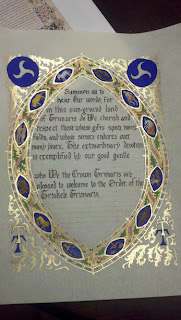 Summon us to
hear Our words, for
in this sun-graced land
of Trimaris do We cherish and
respect those whose gifts span many
fields, and whose service endures over
many years. The extraordinary devotion
is exemplified by our good gentle
who We the Crown Trimaris are
pleased to welcome to the Order of the
Triskele Trimaris.